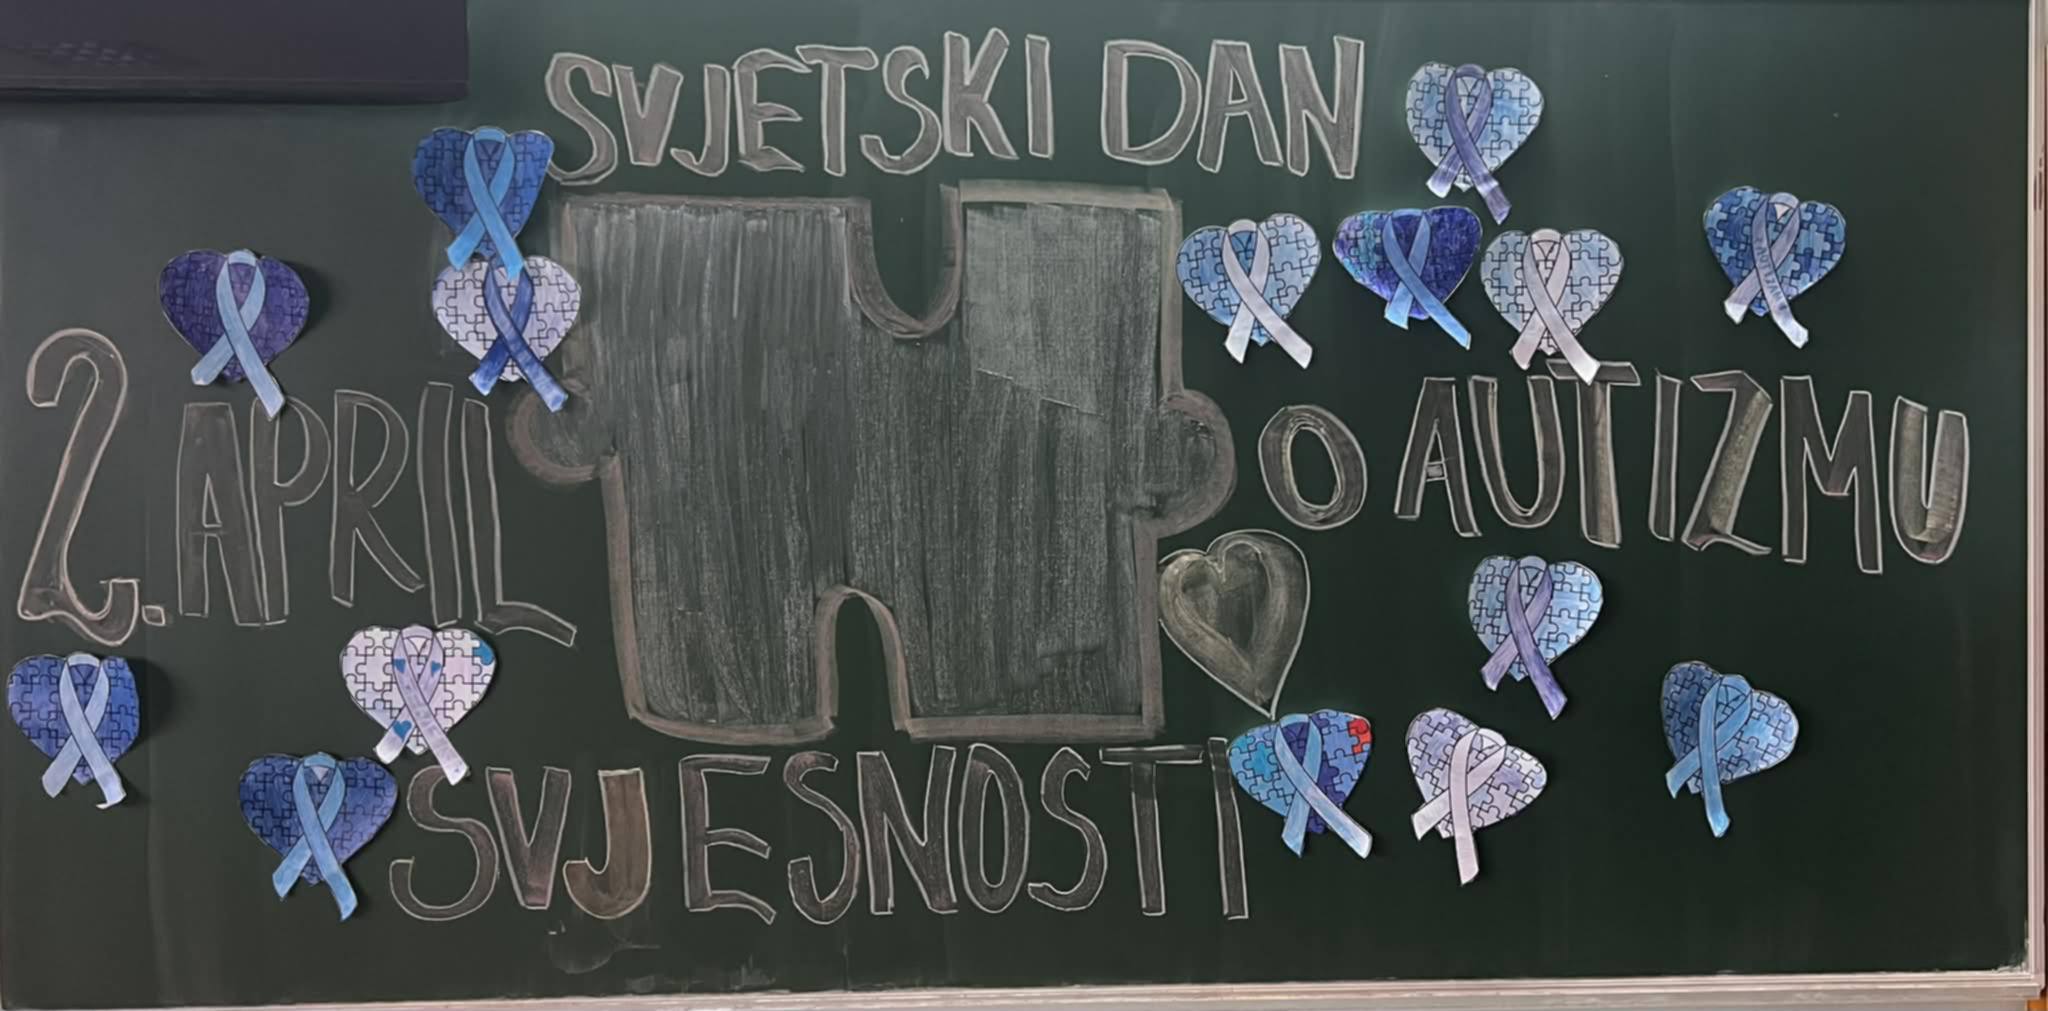 SVJETSKI DAN
2. APRIL
O AUTIZMU
SVJESNOSTI